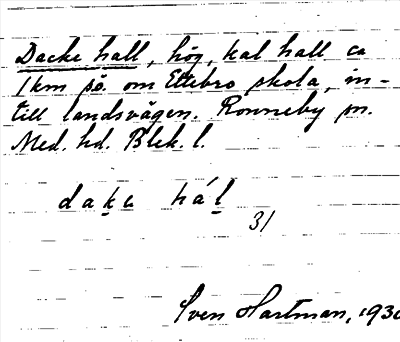 Dacke hall, hög, kal hall ca
1 km sö. om Ettebro skola, in-
till landsvägen. Ronneby sn.
Med. hd. Blek. l.
dake hál
31
Sven Hartman, 1930